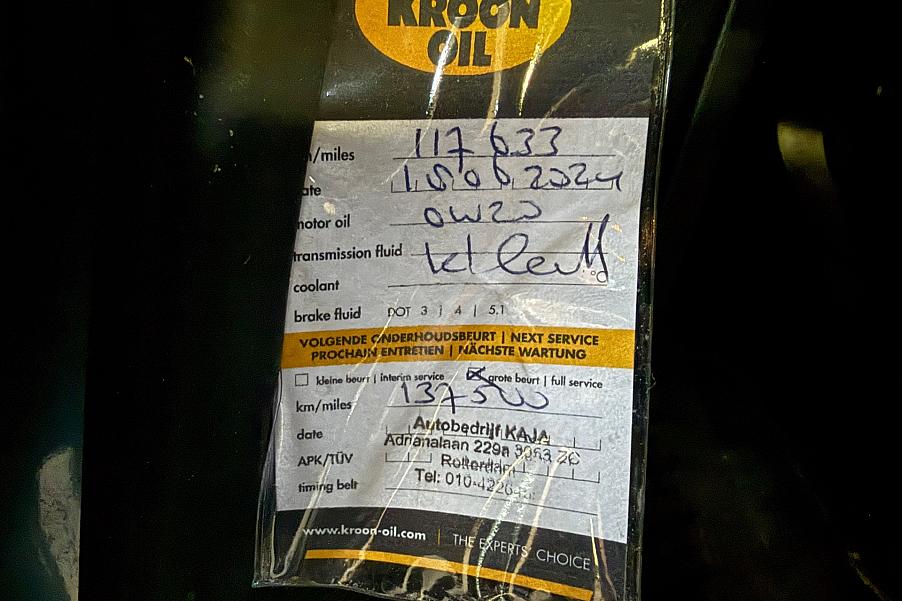 KROON
OIL
/miles 117 633
ate 15 06 2024
motor oil 0W20
transmission fluid
coolant °C
brake fluid DOT 3 | 4 | 5.1
VOLGENDE ONDERHOUDSBEURT | NEXT SERVICE
PROCHAIN ENTRETIEN | NÄCHSTE WARTUNG
kleine beurt | interim service grote beurt | full service
km/miles 137500
date Autobedrijf KAJA
Adrianalaan 229a 3053 ZC
APK/TÜV Rotterdam
timing belt Tel: 010-42264
www.kroon-oil.com | THE EXPERTS' CHOICE